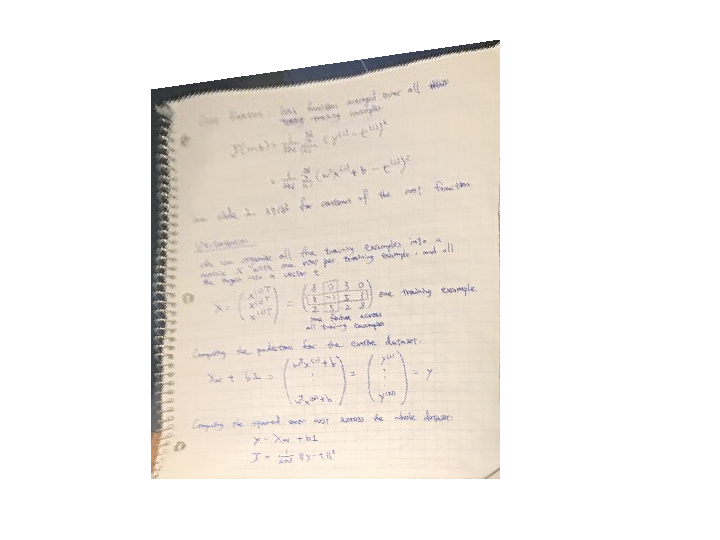 Cost Function: loss function averaged over all
training examples
J(w,b) = 1/2N Σ (y⁽ⁱ⁾ - t⁽ⁱ⁾)²
= 1/2N Σ (wᵀx⁽ⁱ⁾ + b - t⁽ⁱ⁾)²
slide 2 for contours of the cost function.
Vectorization
We can organize all the training examples into a
matrix X with one row per training example, and all
the targets into a vector t
X = (x⁽¹⁾ᵀ x⁽²⁾ᵀ x⁽³⁾ᵀ) = one training example
one feature across
all training examples
Computing the predictions for the entire dataset:
Xw + b1 = (wᵀx⁽¹⁾ + b ⋮ wᵀx⁽ᴺ⁾ + b) = (y⁽¹⁾ ⋮ y⁽ᴺ⁾) = y
Computing the squared error cost across the whole dataset:
y = Xw + b1
J = 1/2N ||y - t||²